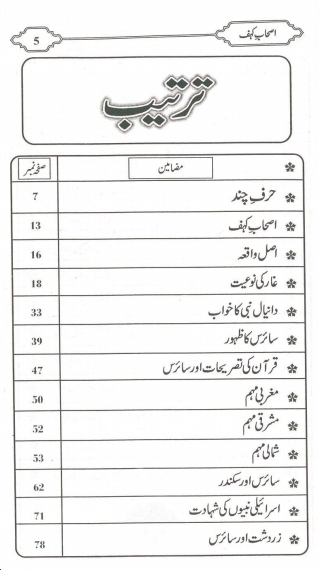 اصحاب کہف 5
ترتیب
مضامین صفحہ نمبر
حرفِ چند 7
اصحاب کہف 13
اصل واقعہ 16
غار کی نوعیت 18
دانیال نبی کا خواب 33
سائرس کا ظہور 39
قرآن کی تصریحات اور سائرس 47
مغربی مہم 50
مشرقی مہم 52
شمالی مہم 53
سائرس اور سکندر 62
اسرائیلی نبیوں کی شہادت 71
زردشت اور سائرس 78